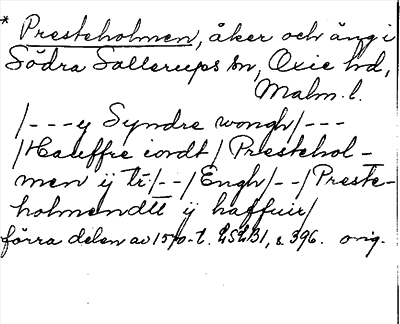 * Presteholmen, åker och äng i
Södra Sallerups sn, Oxie hd,
Malm. l.
/---y Syndre wongh/---
/Hauffre iordt/ Prestehol-
men ij tr:/--/Engh/--/Preste-
holmendtt ij haffuir/
förra delen av 1570-t. LSLB1, s. 396. orig.